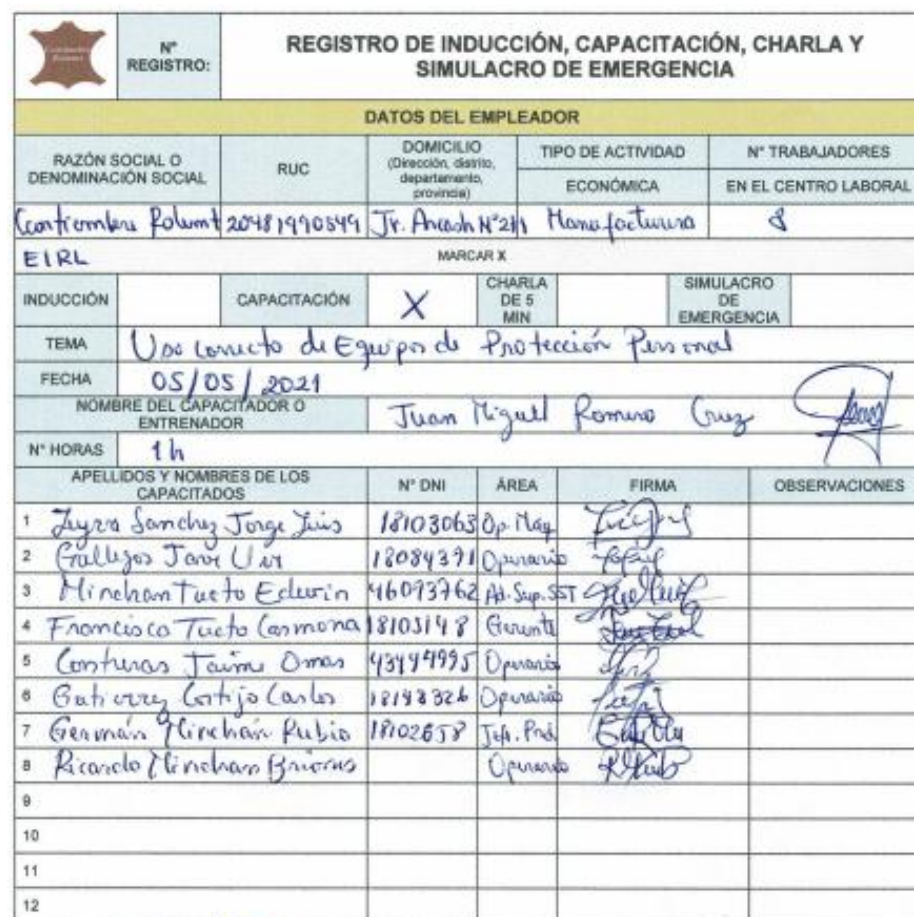 N° REGISTRO:
REGISTRO DE INDUCCIÓN, CAPACITACIÓN, CHARLA Y SIMULACRO DE EMERGENCIA
DATOS DEL EMPLEADOR
RAZÓN SOCIAL O DENOMINACIÓN SOCIAL
RUC
DOMICILIO (Dirección, distrito, departamento, provincia)
TIPO DE ACTIVIDAD ECONÓMICA
N° TRABAJADORES EN EL CENTRO LABORAL
20481990549 Jr. Ancash N°211 Manufacturera 8
EIRL
MARCAR X
INDUCCIÓN CAPACITACIÓN X CHARLA DE 5 MIN SIMULACRO DE EMERGENCIA
TEMA Uso correcto de Equipos de Protección Personal
FECHA 05/05/2021
NOMBRE DEL CAPACITADOR O ENTRENADOR Juan Miguel Romero Cruz
N° HORAS 1h
APELLIDOS Y NOMBRES DE LOS CAPACITADOS N° DNI ÁREA FIRMA OBSERVACIONES
1 Sanchez Jorge Luis 18103063 Op. Maq
2 Gallegos 18084391 Operario
3 Minchan Tucto Edwin 46093762 Ad. Sup. SST
4 Francisco Tucto Carmona Gerente
5 Contreras Jaime Omar Operario
6 Gutierrez Cortijo Carlos Operario
7 Germán Minchán Rubio 18102658 Jefe. Prod
8 Ricardo Minchan Operario
9
10
11
12